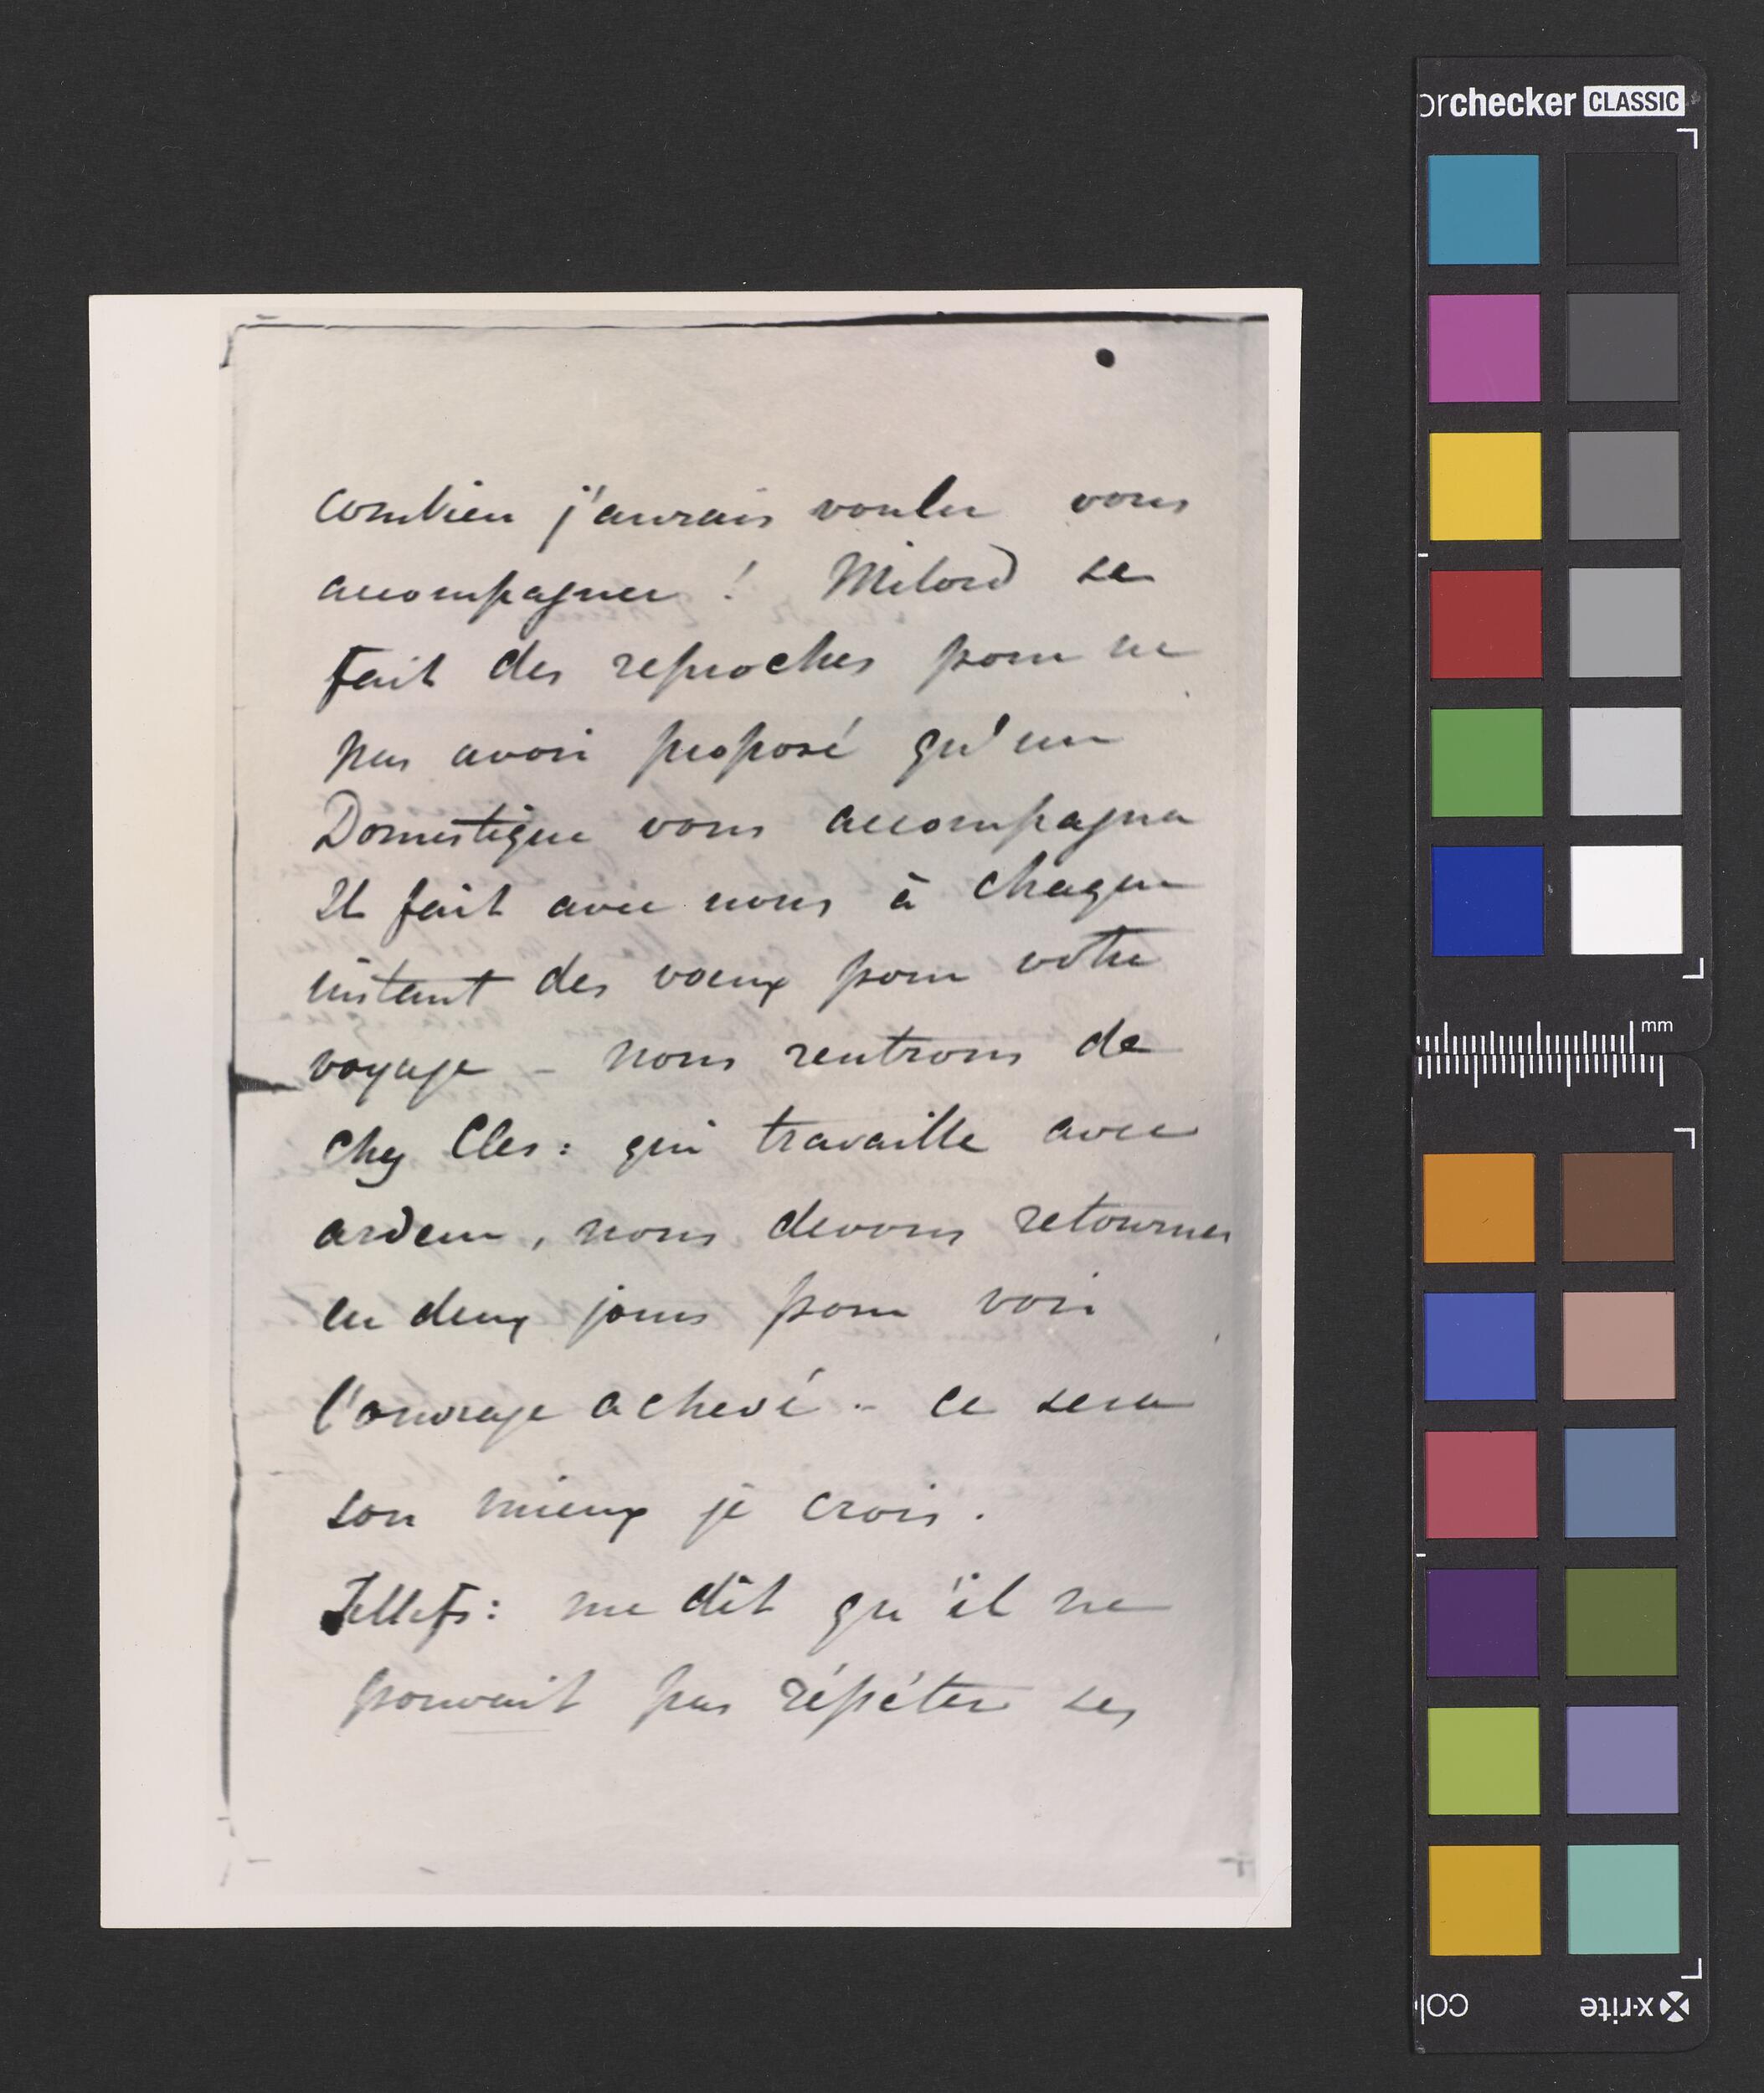 combien j'aurais voulu vous
accompagner ! Milord se
fait des reproches pour ne
pas avoir proposé qu'un
Domestique vous accompagna
Il fait avec nous à chaque
instant des voeux pour votre
voyage - nous rentrons de
chez Cles: qui travaille avec
ardeur, nous devons retourner
en deux jours pour voir
l'ouvrage achevé - ce sera
son mieux je crois.
me dit qu'il ne
pouvait pas répéter ses
orchecker CLASSIC
mm
x-rite
col